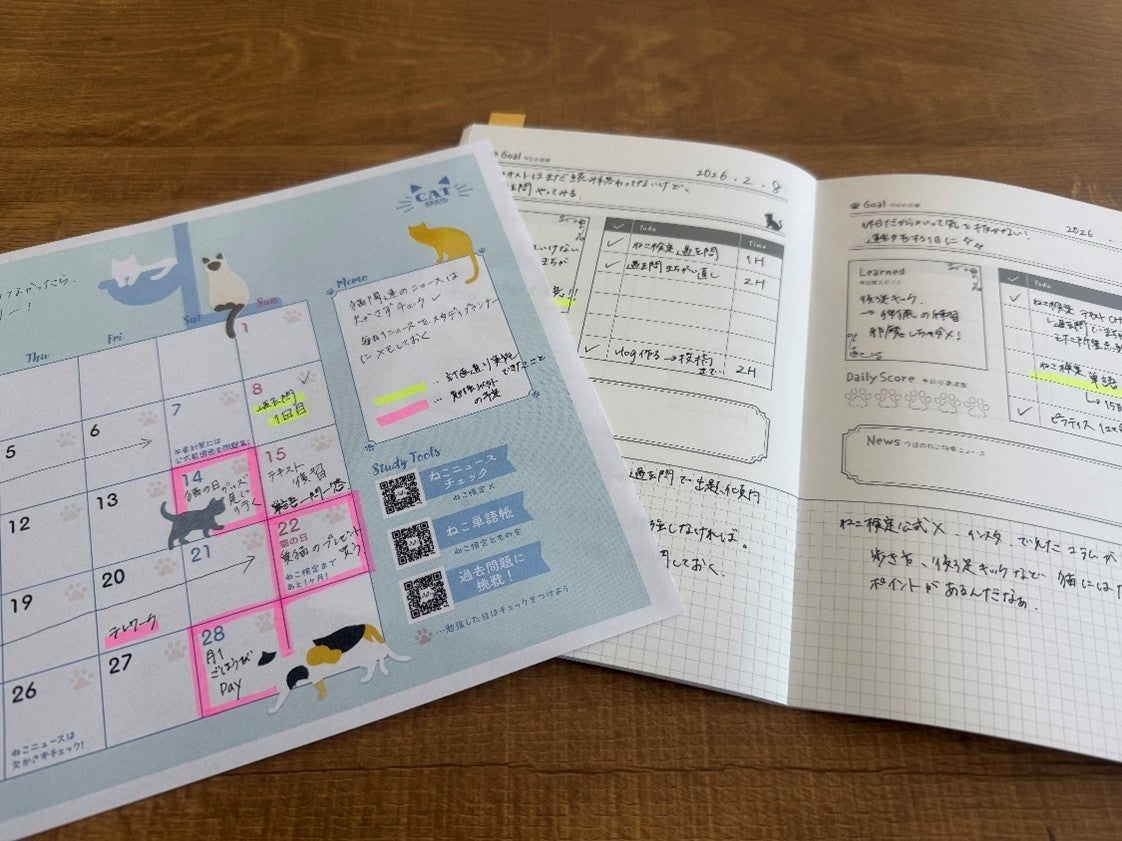 CAT
Thu
Fri
Sat
Sun
1
5
6
7
8
過去問
1回目
12
13
14
猫の日グッズ
見に
行く
15
テキスト
復習
単語一問一答
19
20
21
22
猫の日
愛猫のプレゼント
買う
ねこ検定まで
あと1ヶ月!
テレワーク
26
27
28
月1
ごほうび
Day
ねこニュースは
欠かさずチェック!
Memo
猫関連のニュースは
欠かさずチェック✓
毎日1ニュースをスタディプランナー
にメモしておく
…計画通り実施できたこと
…勉強以外の予定
Study Tools
ねこニュース
チェック
ねこ検定 X
ねこ単語帳
ねこ検定ともの会
過去問題に
挑戦!
…勉強した日はチェックをつけよう
Goal 今日の目標
2026.2.8
テキストはまだ読み終わってないけど、
過去問やってみる
✓ Todo Time
✓ ねこ検定 過去問 1H
✓ 過去問まちがい直し 2H
✓ Vlog作る→投稿まで 2H
過去問で出題傾向
しなければ。
しておく。
Goal 今日の目標
2026
昨日だからといって気を抜かない
Learned
今日覚えたこと
後足キック
Daily Score 今日の達成度
News 今日のねこニュース
✓ Todo
✓ ねこ検定 テキスト
ねこ検定 単語
✓ ピラティス
ねこ検定公式X、インスタで見たコラムが
歩き方、後足キックなど猫には
ポイントがあるんだなぁ。